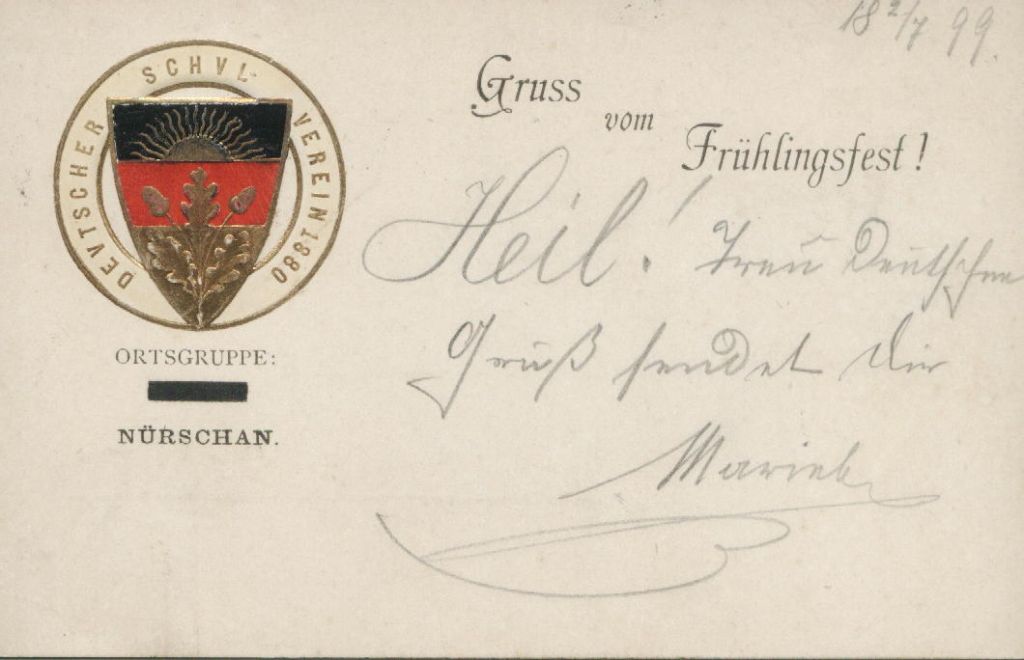 18 2/7 99.
DEVTSCHER SCHVL-VEREIN 1880
Gruss
vom
Frühlingsfest!
Heil! Treu Deutschen
Gruß sendet Dir
ORTSGRUPPE:
NÜRSCHAN.